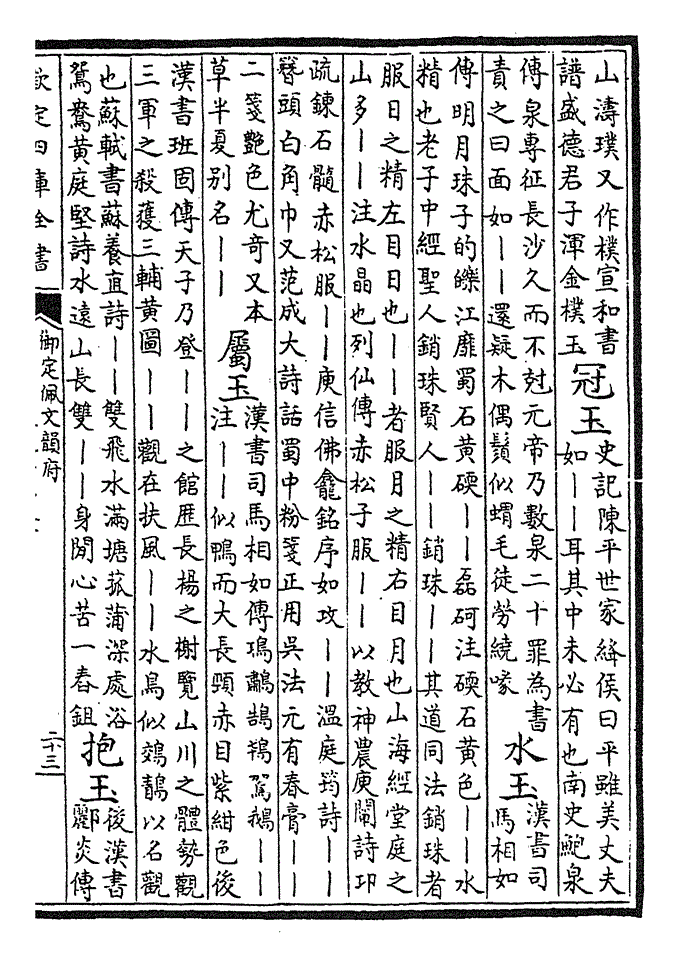 山濤璞又作樸宣和書
譜盛德君子渾金樸玉
冠玉
史記陳平世家絳侯曰平雖美丈夫
如丨丨耳其中未必有也南史鮑泉
傳泉專征長沙久而不尅元帝乃數泉二十罪為書
責之曰面如丨丨還疑木偶鬚似蝟毛徒勞繞喙
水玉
漢書司
馬相如
傳明月珠子的皪江靡蜀石黃碝丨丨磊砢注碝石黃色丨丨水
精也老子中經聖人銷珠賢人丨丨銷珠丨丨其道同法銷珠者
服日之精左目日也丨丨者服月之精右目月也山海經堂庭之
山多丨丨注水晶也列仙傳赤松子服丨丨以教神農庾闡詩卭
疏鍊石髓赤松服丨丨庾信佛龕銘序如攻丨丨溫庭筠詩丨丨
簪頭白角巾又范成大詩話蜀中粉箋正用吳法元有春膏丨丨
二箋艷色尤奇又本
草半夏别名丨丨
屬玉
漢書司馬相如傳鴻鷫鵠鴇駕鵝丨丨
注丨丨似鴨而大長頸赤目紫紺色後
漢書班固傳天子乃登丨丨之館歴長楊之榭覽山川之體勢觀
三軍之殺獲三輔黃圖丨丨觀在扶風丨丨水鳥似鵁鶄以名觀
也蘇軾書蘇養直詩丨丨雙飛水滿塘菰蒲深處浴
鴛鴦黃庭堅詩水遠山長雙丨丨身閒心苦一舂鉏
抱玉
後漢書
酈炎傳
欽定四庫全書
御定佩文韻府
二十三